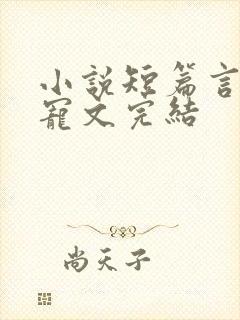 小說短篇言
寵文完結
尚天子